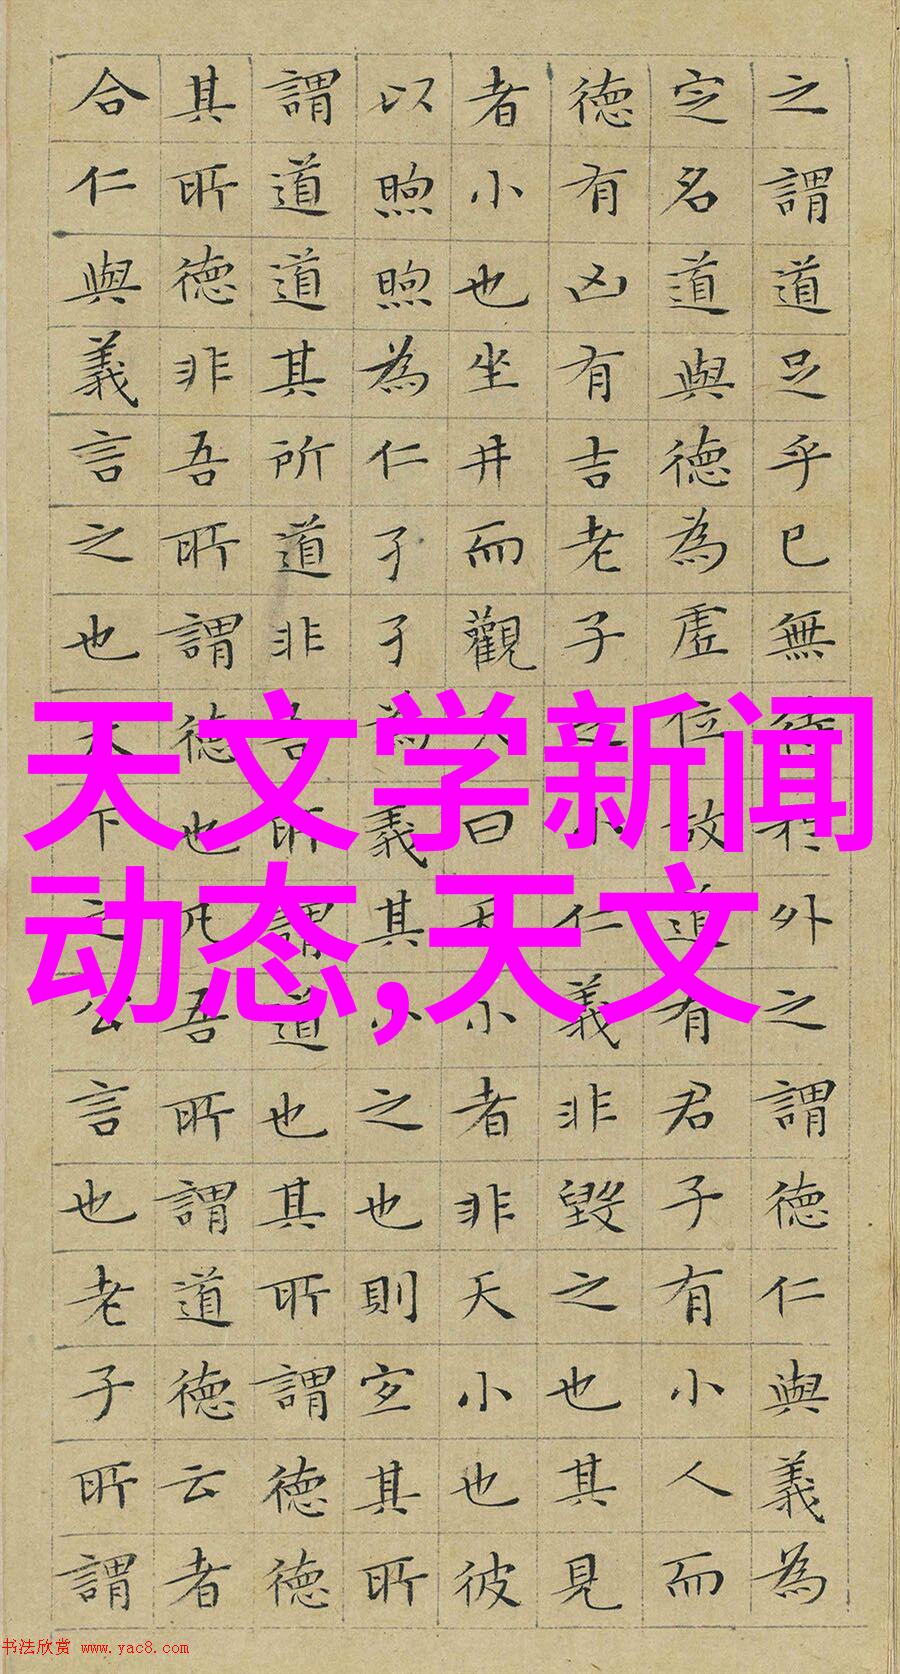 之謂道足乎已無待於外之謂德仁與義為
定名道與德為虛位故道有君子有小人而
德有凶有吉老子之小仁義非毀之也其見
者小也坐井而觀天曰天小者非天小也彼
以煦煦為仁孑孑為義其小之也則宜其所
謂道道其所道非吾所謂道也其所謂德德
其所德非吾所謂德也凡吾所謂道德云者
合仁與義言之也天下之公言也老子所謂
天文学新闻
动态,天文
书法欣赏 www.yac8.com